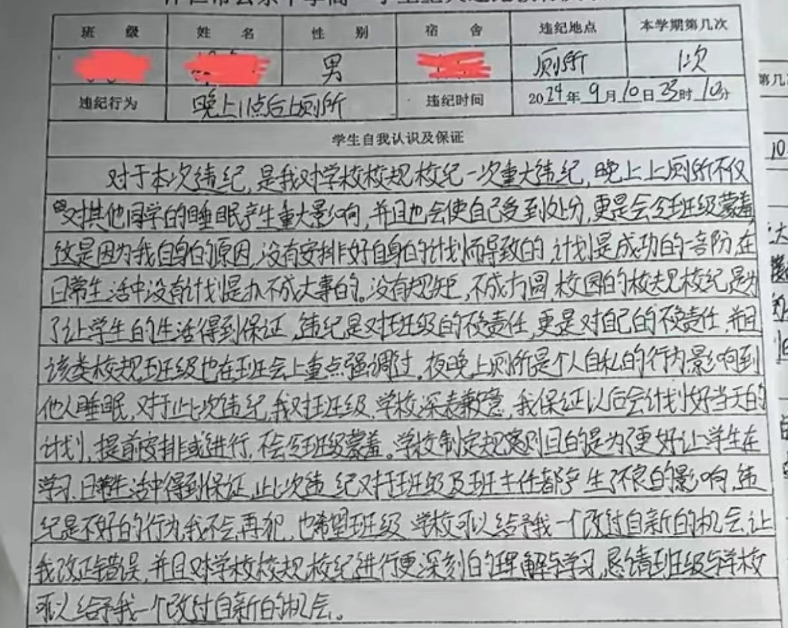 班 级 姓 名 性 别 宿 舍 违纪地点 本学期第几次
男 厕所 1次
违纪行为 晚上11点后上厕所 违纪时间 2024年9月10日23时10分
学生自我认识及保证
对于本次违纪,是我对学校校规校纪一次重大违纪,晚上上厕所不仅
对其他同学的睡眠产生重大影响,并且也会使自己受到处分,更是会令班级蒙羞
这是因为我自身的原因,没有安排好自身的计划而导致的,计划是成功的一部份,在
日常生活中没有计划是办不成大事的。没有规矩,不成方圆,校园的校规校纪是为
了让学生的生活得到保证,违纪是对班级的不负责任,更是对自己的不负责任,并且
该类校规班级也在班会上重点强调过,夜晚上厕所是个人自私的行为,影响到
他人睡眠,对于此次违纪,我对班级、学校深表歉意,我保证以后会计划好当天的
计划,提前安排或进行,不会令班级蒙羞。学校制定规章则目的是为了更好让学生在
学习、日常生活中得到保证,此次违纪对于班级及班主任都产生了不良的影响,违
纪是不好的行为,我不会再犯,也希望班级、学校可以给予我一个改过自新的机会,让
我改正错误,并且对学校校规、校纪进行更深刻的理解与学习,恳请班级与学校
可以给予我一个改过自新的机会。
第几
10.